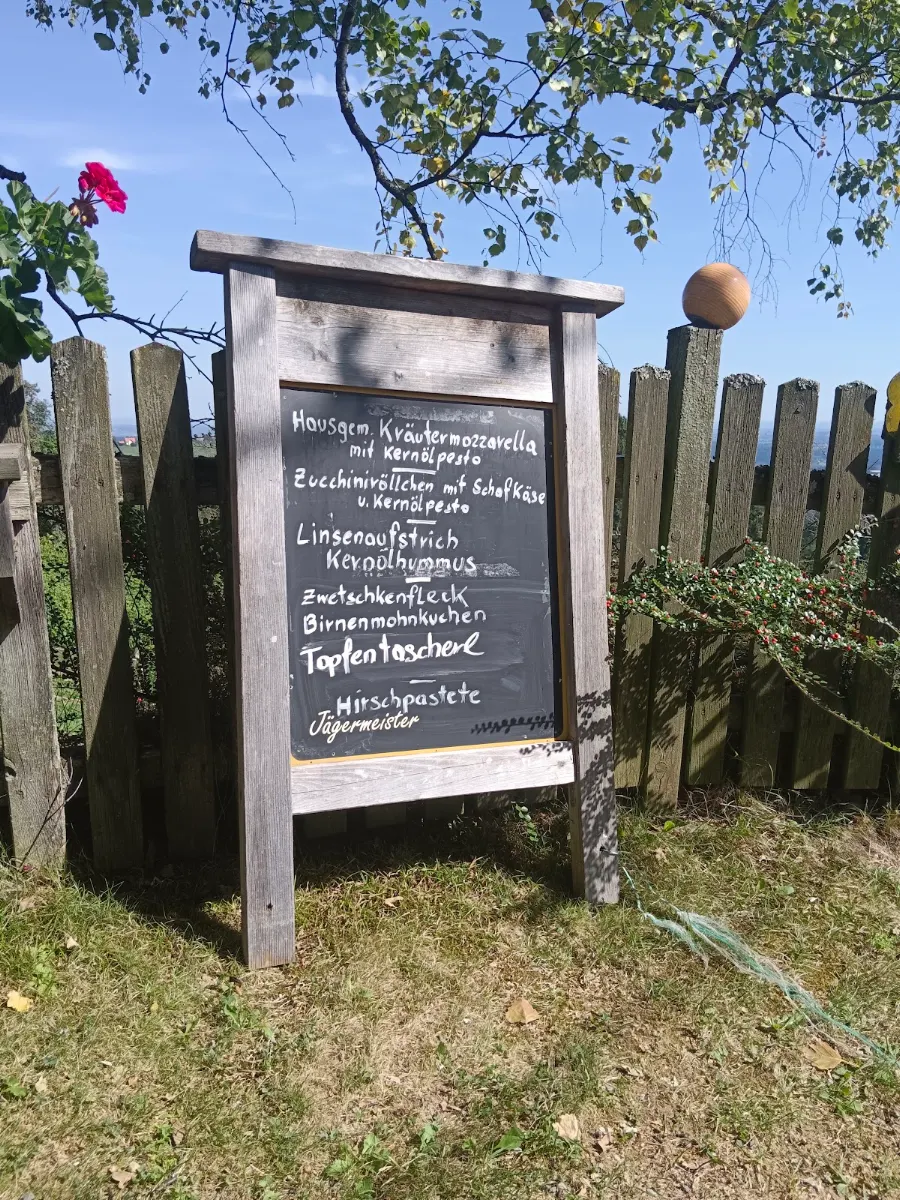 Hausgem. Kräutermozzarella
mit Kernölpesto
Zucchiniröllchen mit Schafkäse
u. Kernölpesto
Linsenaufstrich
Kernölhummus
Zwetschkenfleck
Birnenmohnkuchen
Topfentascherl
Hirschpastete
Jägermeister